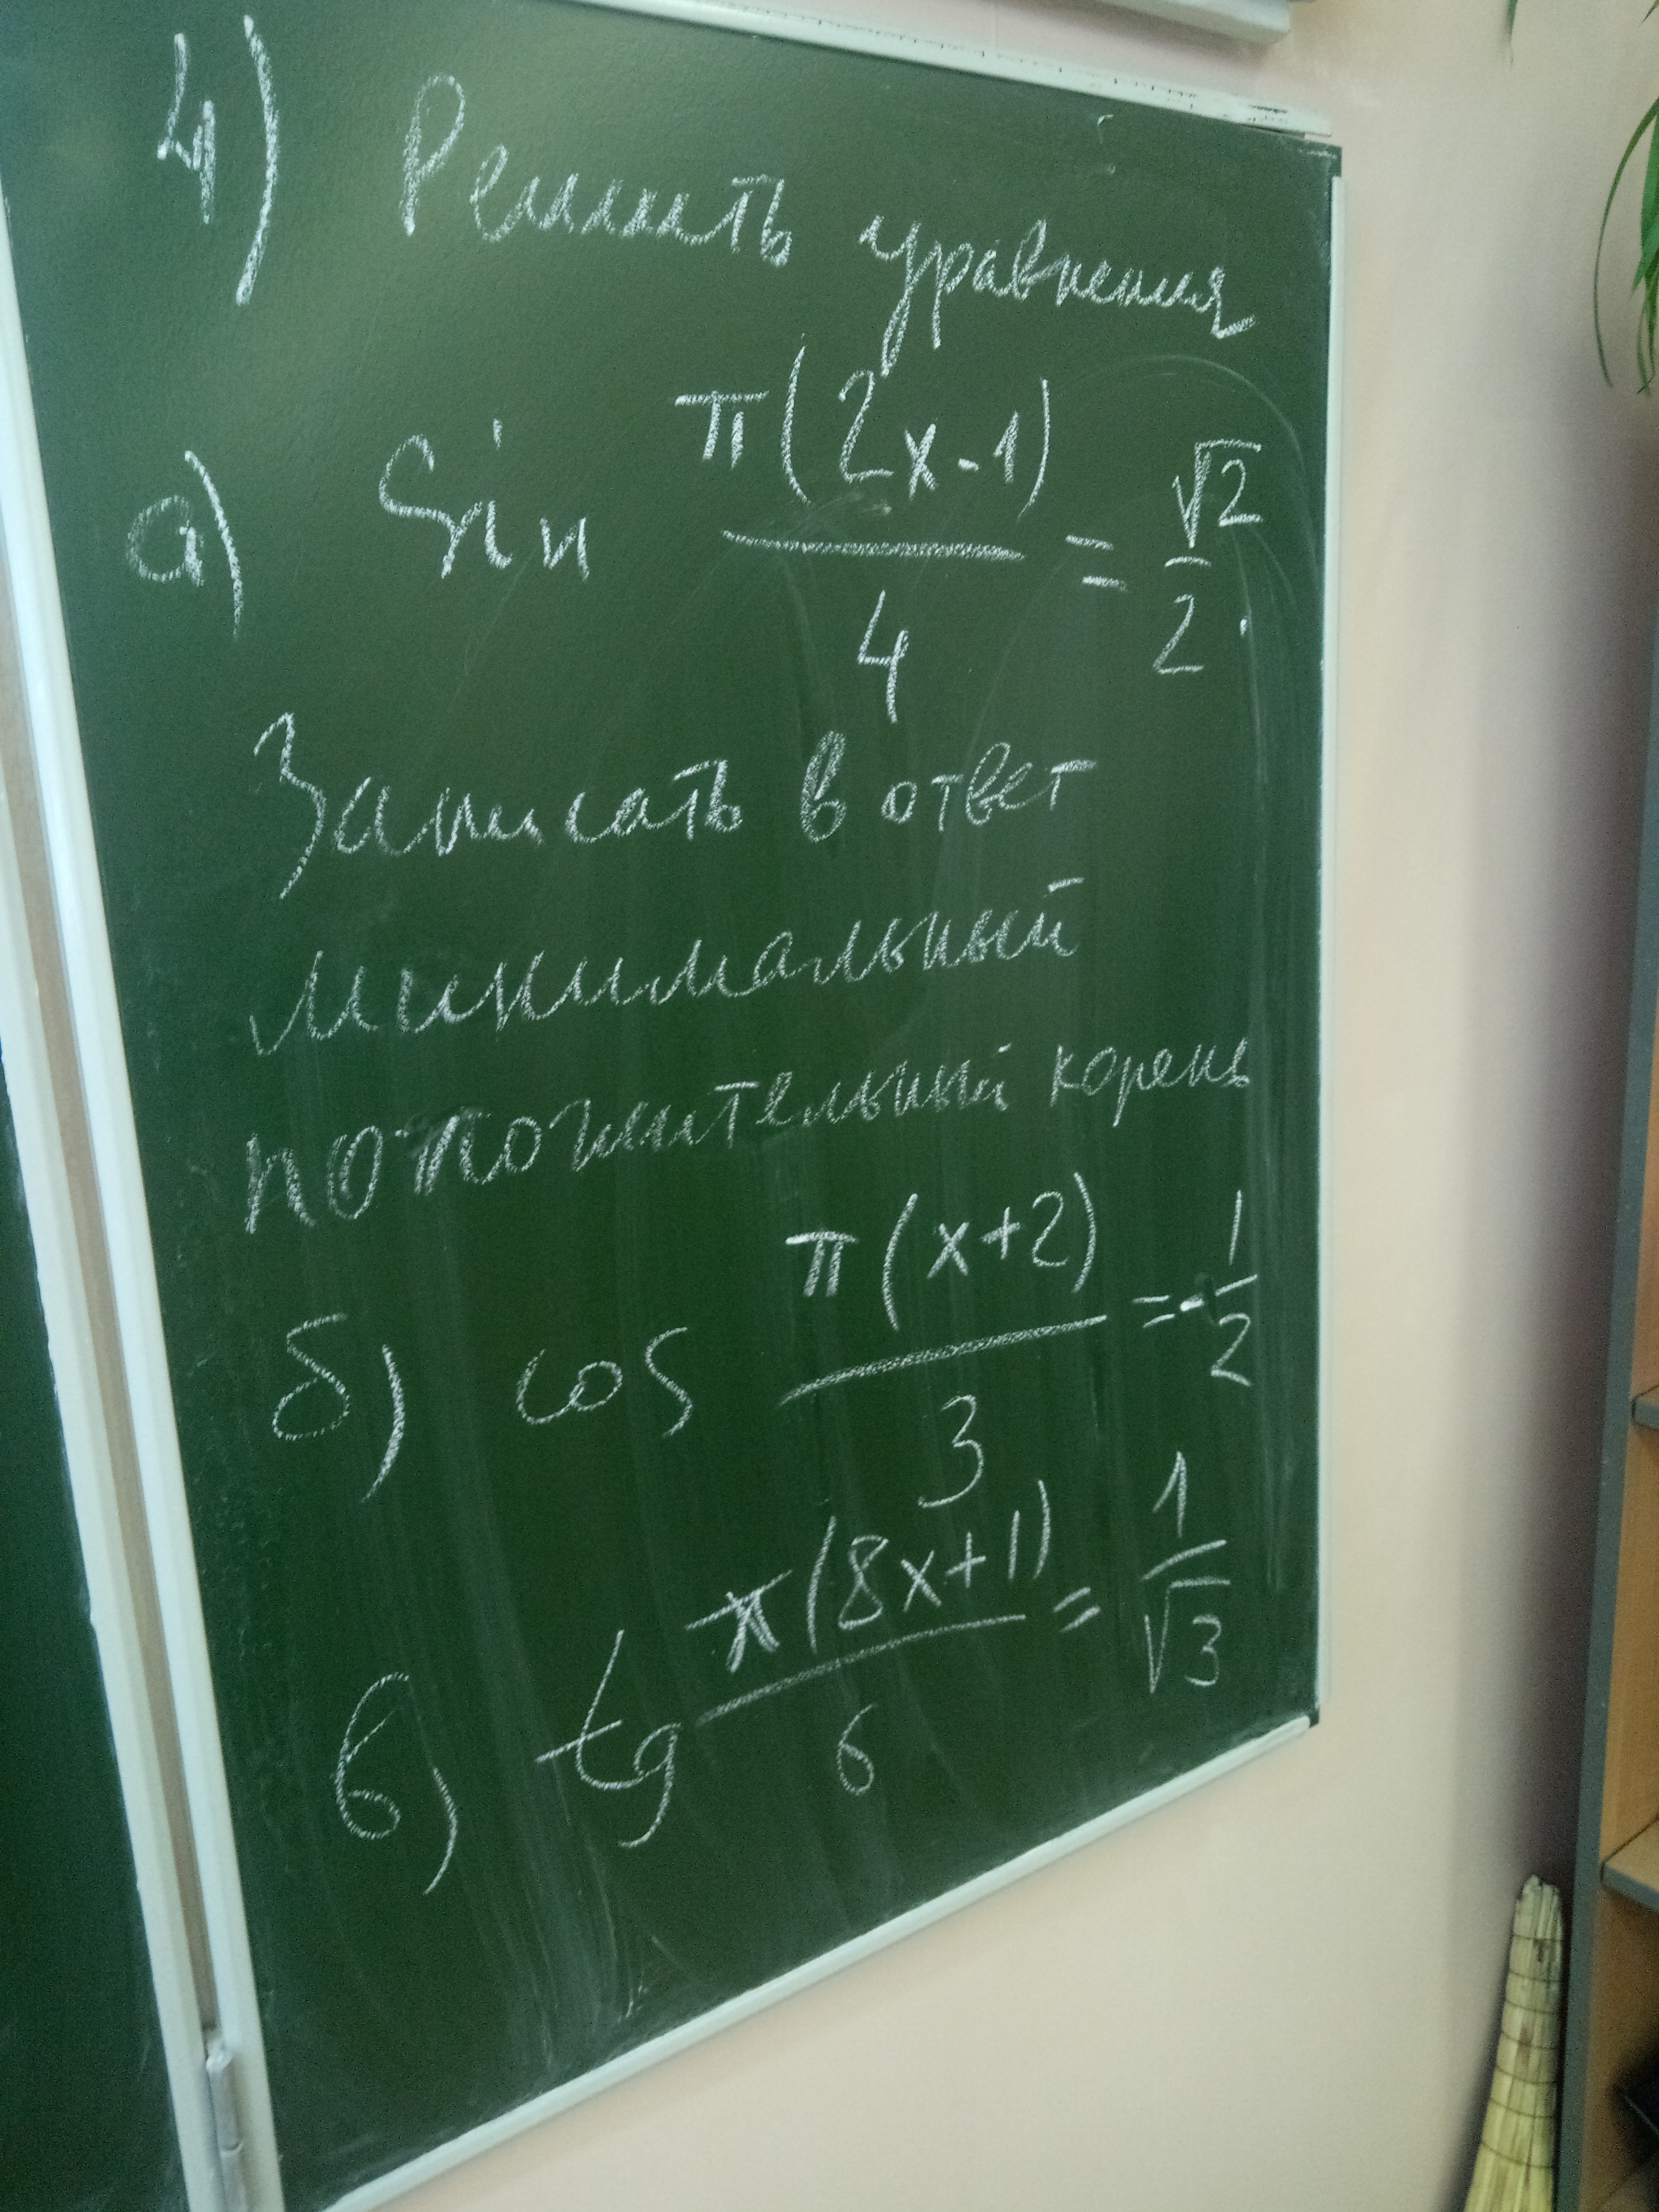 4) Решить уравнения
а) Sin π(2x-1)/4 = √2/2.
Записать в ответ
минимальный
положительный корень
б) cos π(x+2)/3 = -1/2
в) tg π(8x+1)/6 = 1/√3